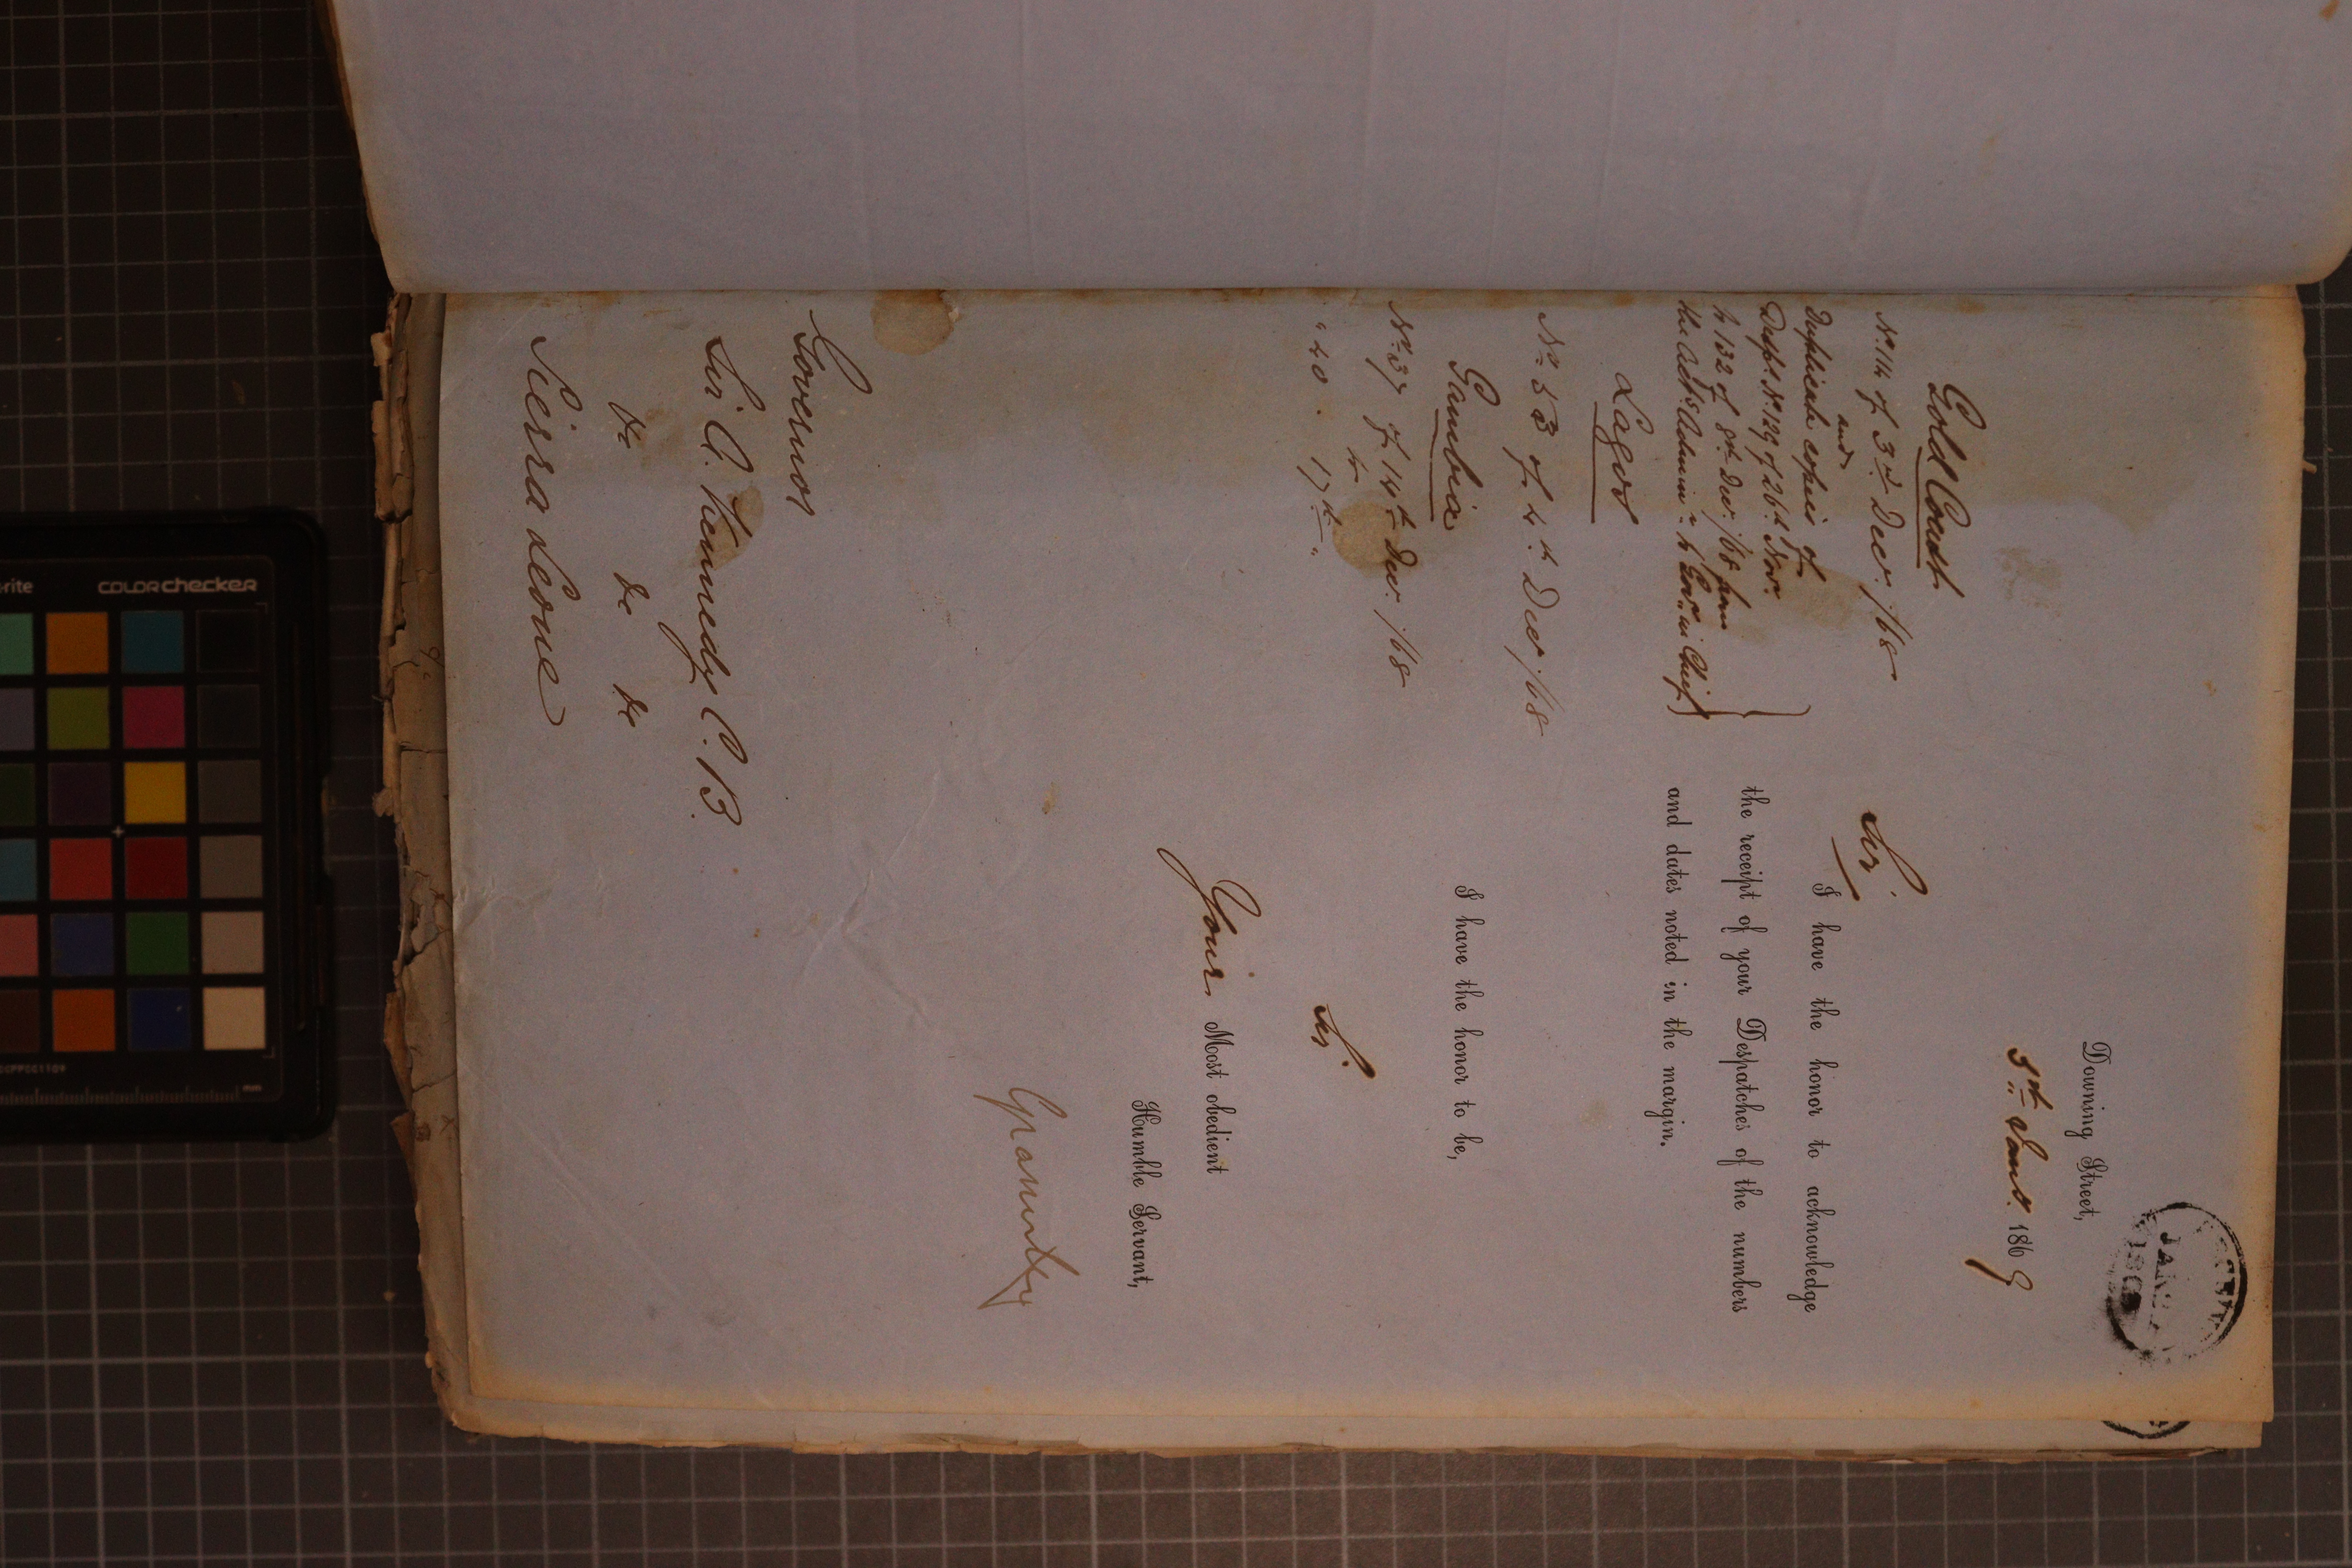 Downing Street,
3rd Jany. 1869
Gold Coast
No. 114 of 3rd Decr./68
and
Duplicate copies of
Desps. No. 129 of 26th Novr.
to 132 of 8th Decr./68 from
the Actg. Adminr. to Govr. in Chief
Lagos
No. 53 of 4th Decr./68
Gambia
No. 37 of 14th Decr./68
to
" 40 . 17th "
Sir
I have the honor to acknowledge
the receipt of your Despatches of the numbers
and dates noted in the margin.
I have the honor to be,
Sir.
Your Most obedient
Humble Servant,
Granville
Governor
Sir A. Kennedy C.B.
&c &c &c
Sierra Leone
JAN
COLORchecker